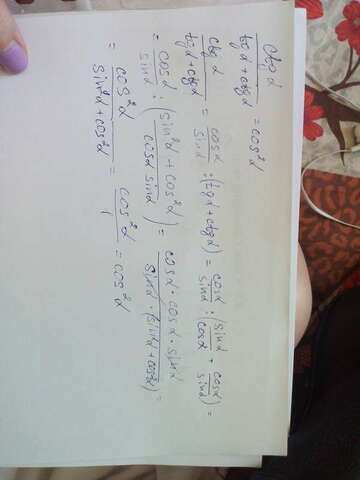 ctg α / (tg α + ctg α) = cos²α
ctg α / (tg α + ctg α) = cos α / sin α : (tg α + ctg α) = cos α / sin α : (sin α / cos α + cos α / sin α) =
= cos α / sin α : ((sin²α + cos²α) / (cos α sin α)) = cos α · cos α · sin α / (sin α · (sin²α + cos²α)) =
= cos²α / (sin²α + cos²α) = cos²α / 1 = cos²α